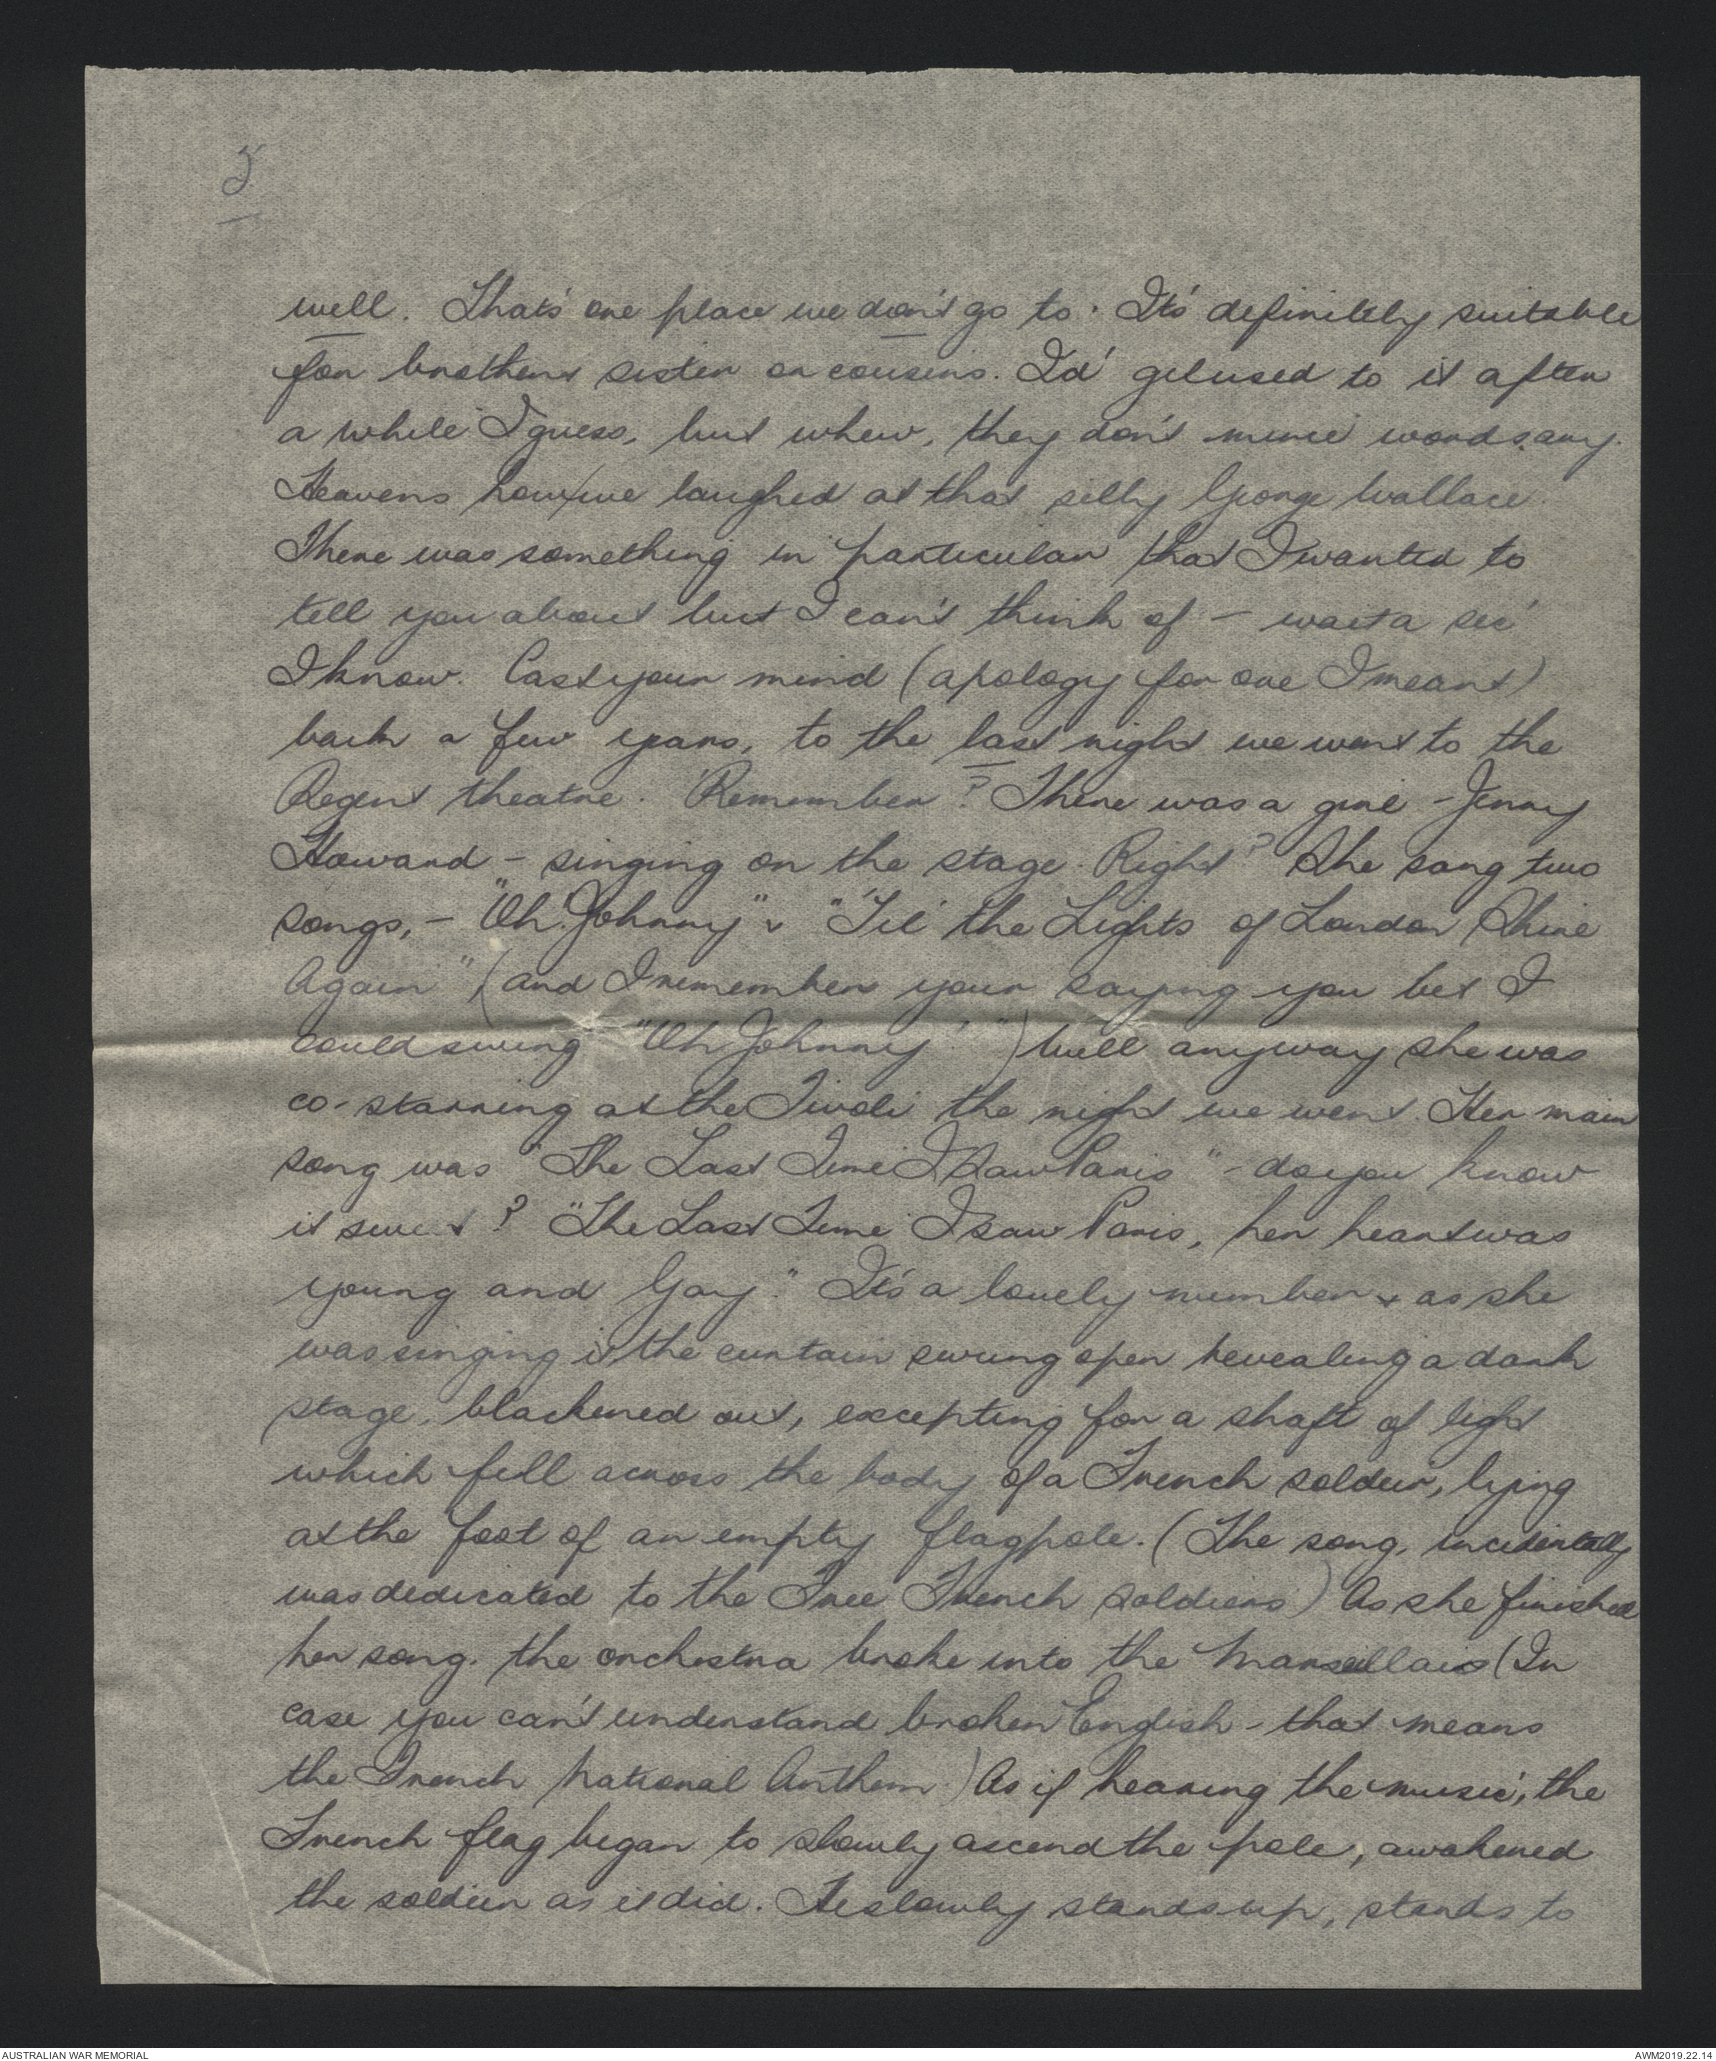 well. That's one place we don't go to. It's definitely suitable
for brothers sister or cousins. I'd get used to it after
a while I guess, but whew, they don't mince words any.
Heavens how we laughed at that silly George Wallace.
There was something in particular that I wanted to
tell you about but I can't think of - wait a sec'
I know. Cast your mind (apology for one I meant)
back a few years, to the last night we went to the
Regent theatre. Remember? There was a girl - Jenny
Howard - singing on the stage. Right? She sang two
songs, - "Oh Johnny" & "'Til the Lights of London Shine
Again" (and I remember your saying you bet I
could swing "Oh Johnny!") Well anyway she was
co-starring at the Tivoli the night we went. Her main
song was "The Last Time I Saw Paris" - do you know
it sweet? "The Last Time I saw Paris, her heart was
young and Gay." It's a lovely number & as she
was singing it, the curtain swung open revealing a dark
stage, blackened out, excepting for a shaft of light
which fell across the body of a French soldier, lying
at the foot of an empty flagpole. (The song, incidentally
was dedicated to the Free French soldiers) As she finished
her song. the orchestra broke into the Marseillais (In
case you can't understand broken English - that means
the French National Anthem.) As if hearing the music, the
French flag began to slowly ascend the pole, awakened
the soldier as it did. He slowly stands up, stands to
AUSTRALIAN WAR MEMORIAL
AWM2019.22.14